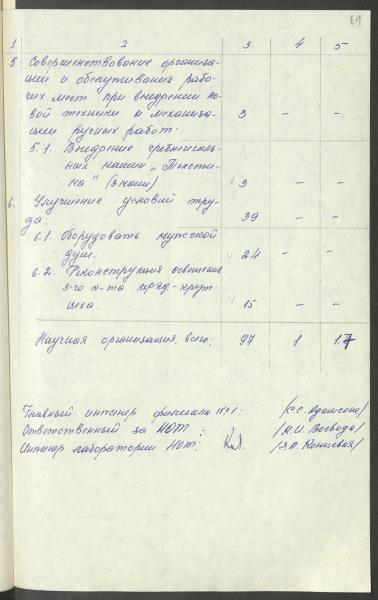 61
1 2 3 4 5
5 Совершенствование организа-
ции и обслуживания рабо-
чих мест при внедрении но-
вой техники и механиза-
ции ручных работ. 3 – –
5.1. Внедрение гребнечесаль-
ных машин „Тексти-
ма" (3 комп) √ 3 – –
6. Улучшение условий тру-
да: 39 – –
6.1. Оборудовать мужской
душ. √ 24 – –
6.2. Реконструкция освещения
3-го к-та пряд-крут.
цеха. √ 15 – –
Научная организация, всего: 97 1 1.7
Главный инженер филиала №1: /Р.С. Адамсоне/
Ответственный за НОТ: /К.И. Воевода/
Инженер лаборатории НОТ: /З.А. Концевая/